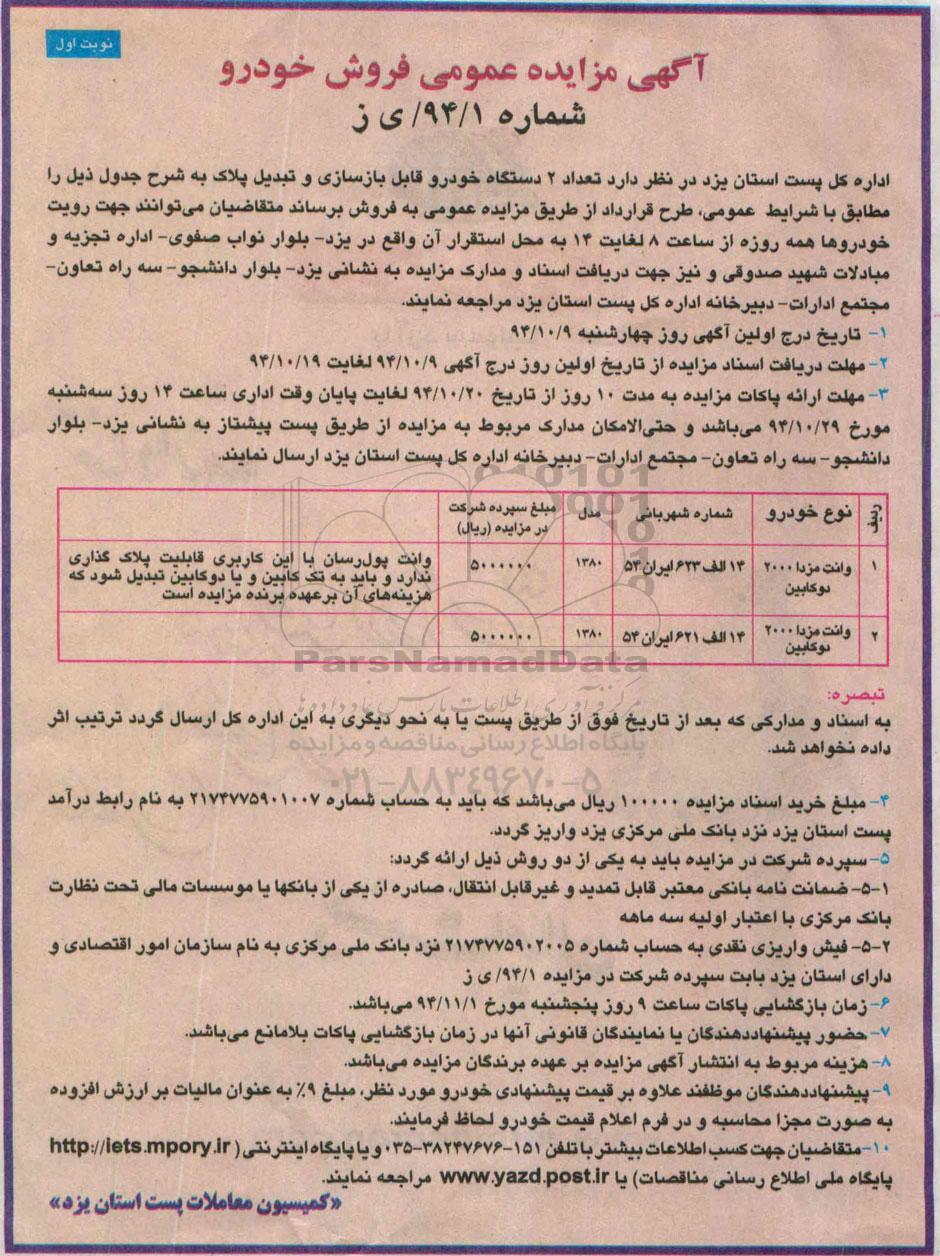 نوبت اول
آگهی مزایده عمومی فروش خودرو
شماره ۹۴/۱/ ی ز
اداره کل پست استان یزد در نظر دارد تعداد ۲ دستگاه خودرو قابل بازسازی و تبدیل پلاک به شرح جدول ذیل را
مطابق با شرایط عمومی، طرح قرارداد از طریق مزایده عمومی به فروش برساند متقاضیان می‌توانند جهت رویت
خودروها همه روزه از ساعت ۸ لغایت ۱۴ به محل استقرار آن واقع در یزد- بلوار نواب صفوی- اداره تجزیه و
مبادلات شهید صدوقی و نیز جهت دریافت اسناد و مدارک مزایده به نشانی یزد- بلوار دانشجو- سه راه تعاون-
مجتمع ادارات- دبیرخانه اداره کل پست استان یزد مراجعه نمایند.
۱- تاریخ درج اولین آگهی روز چهارشنبه ۹۴/۱۰/۹
۲- مهلت دریافت اسناد مزایده از تاریخ اولین روز درج آگهی ۹۴/۱۰/۹ لغایت ۹۴/۱۰/۱۹
۳- مهلت ارائه پاکات مزایده به مدت ۱۰ روز از تاریخ ۹۴/۱۰/۲۰ لغایت پایان وقت اداری ساعت ۱۴ روز سه‌شنبه
مورخ ۹۴/۱۰/۲۹ می‌باشد و حتی‌الامکان مدارک مربوط به مزایده از طریق پست پیشتاز به نشانی یزد- بلوار
دانشجو- سه راه تعاون- مجتمع ادارات- دبیرخانه اداره کل پست استان یزد ارسال نمایند.
ردیف نوع خودرو شماره شهربانی مدل مبلغ سپرده شرکت
در مزایده (ریال)
۱ وانت مزدا ۲۰۰۰ ۱۴ الف ۶۲۳ ایران ۵۴ ۱۳۸۰ ۵۰۰۰۰۰۰ وانت پول‌رسان با این کاربری قابلیت پلاک گذاری
دوکابین ندارد و باید به تک کابین و یا دوکابین تبدیل شود که
هزینه‌های آن برعهده برنده مزایده است
۲ وانت مزدا ۲۰۰۰ ۱۴ الف ۶۲۱ ایران ۵۴ ۱۳۸۰ ۵۰۰۰۰۰۰
دوکابین
ParsNamadData
مرکز فرآوری اطلاعات پارس نماد داده‌ها
پایگاه اطلاع رسانی مناقصه و مزایده
۰۲۱-۸۸۳۴۹۶۷۰-۵
تبصره:
به اسناد و مدارکی که بعد از تاریخ فوق از طریق پست یا به نحو دیگری به این اداره کل ارسال گردد ترتیب اثر
داده نخواهد شد.
۴- مبلغ خرید اسناد مزایده ۱۰۰۰۰۰ ریال می‌باشد که باید به حساب شماره ۲۱۷۴۷۷۵۹۰۱۰۰۷ به نام رابط درآمد
پست استان یزد نزد بانک ملی مرکزی یزد واریز گردد.
۵- سپرده شرکت در مزایده باید به یکی از دو روش ذیل ارائه گردد:
۵-۱- ضمانت نامه بانکی معتبر قابل تمدید و غیرقابل انتقال، صادره از یکی از بانکها یا موسسات مالی تحت نظارت
بانک مرکزی با اعتبار اولیه سه ماهه
۵-۲- فیش واریزی نقدی به حساب شماره ۲۱۷۴۷۷۵۹۰۲۰۰۵ نزد بانک ملی مرکزی به نام سازمان امور اقتصادی و
دارای استان یزد بابت سپرده شرکت در مزایده ۹۴/۱/ ی ز
۶- زمان بازگشایی پاکات ساعت ۹ روز پنجشنبه مورخ ۹۴/۱۱/۱ می‌باشد.
۷- حضور پیشنهاددهندگان یا نمایندگان قانونی آنها در زمان بازگشایی پاکات بلامانع می‌باشد.
۸- هزینه مربوط به انتشار آگهی مزایده بر عهده برندگان مزایده می‌باشد.
۹- پیشنهاددهندگان موظفند علاوه بر قیمت پیشنهادی خودرو مورد نظر، مبلغ ۹٪ به عنوان مالیات بر ارزش افزوده
به صورت مجزا محاسبه و در فرم اعلام قیمت خودرو لحاظ فرمایند.
۱۰- متقاضیان جهت کسب اطلاعات بیشتر با تلفن ۱۵۱-۳۸۲۴۷۶۷۶-۰۳۵ و یا پایگاه اینترنتی ( http://iets.mpory.ir
پایگاه ملی اطلاع رسانی مناقصات) یا www.yazd.post.ir مراجعه نمایند.
«کمیسیون معاملات پست استان یزد»